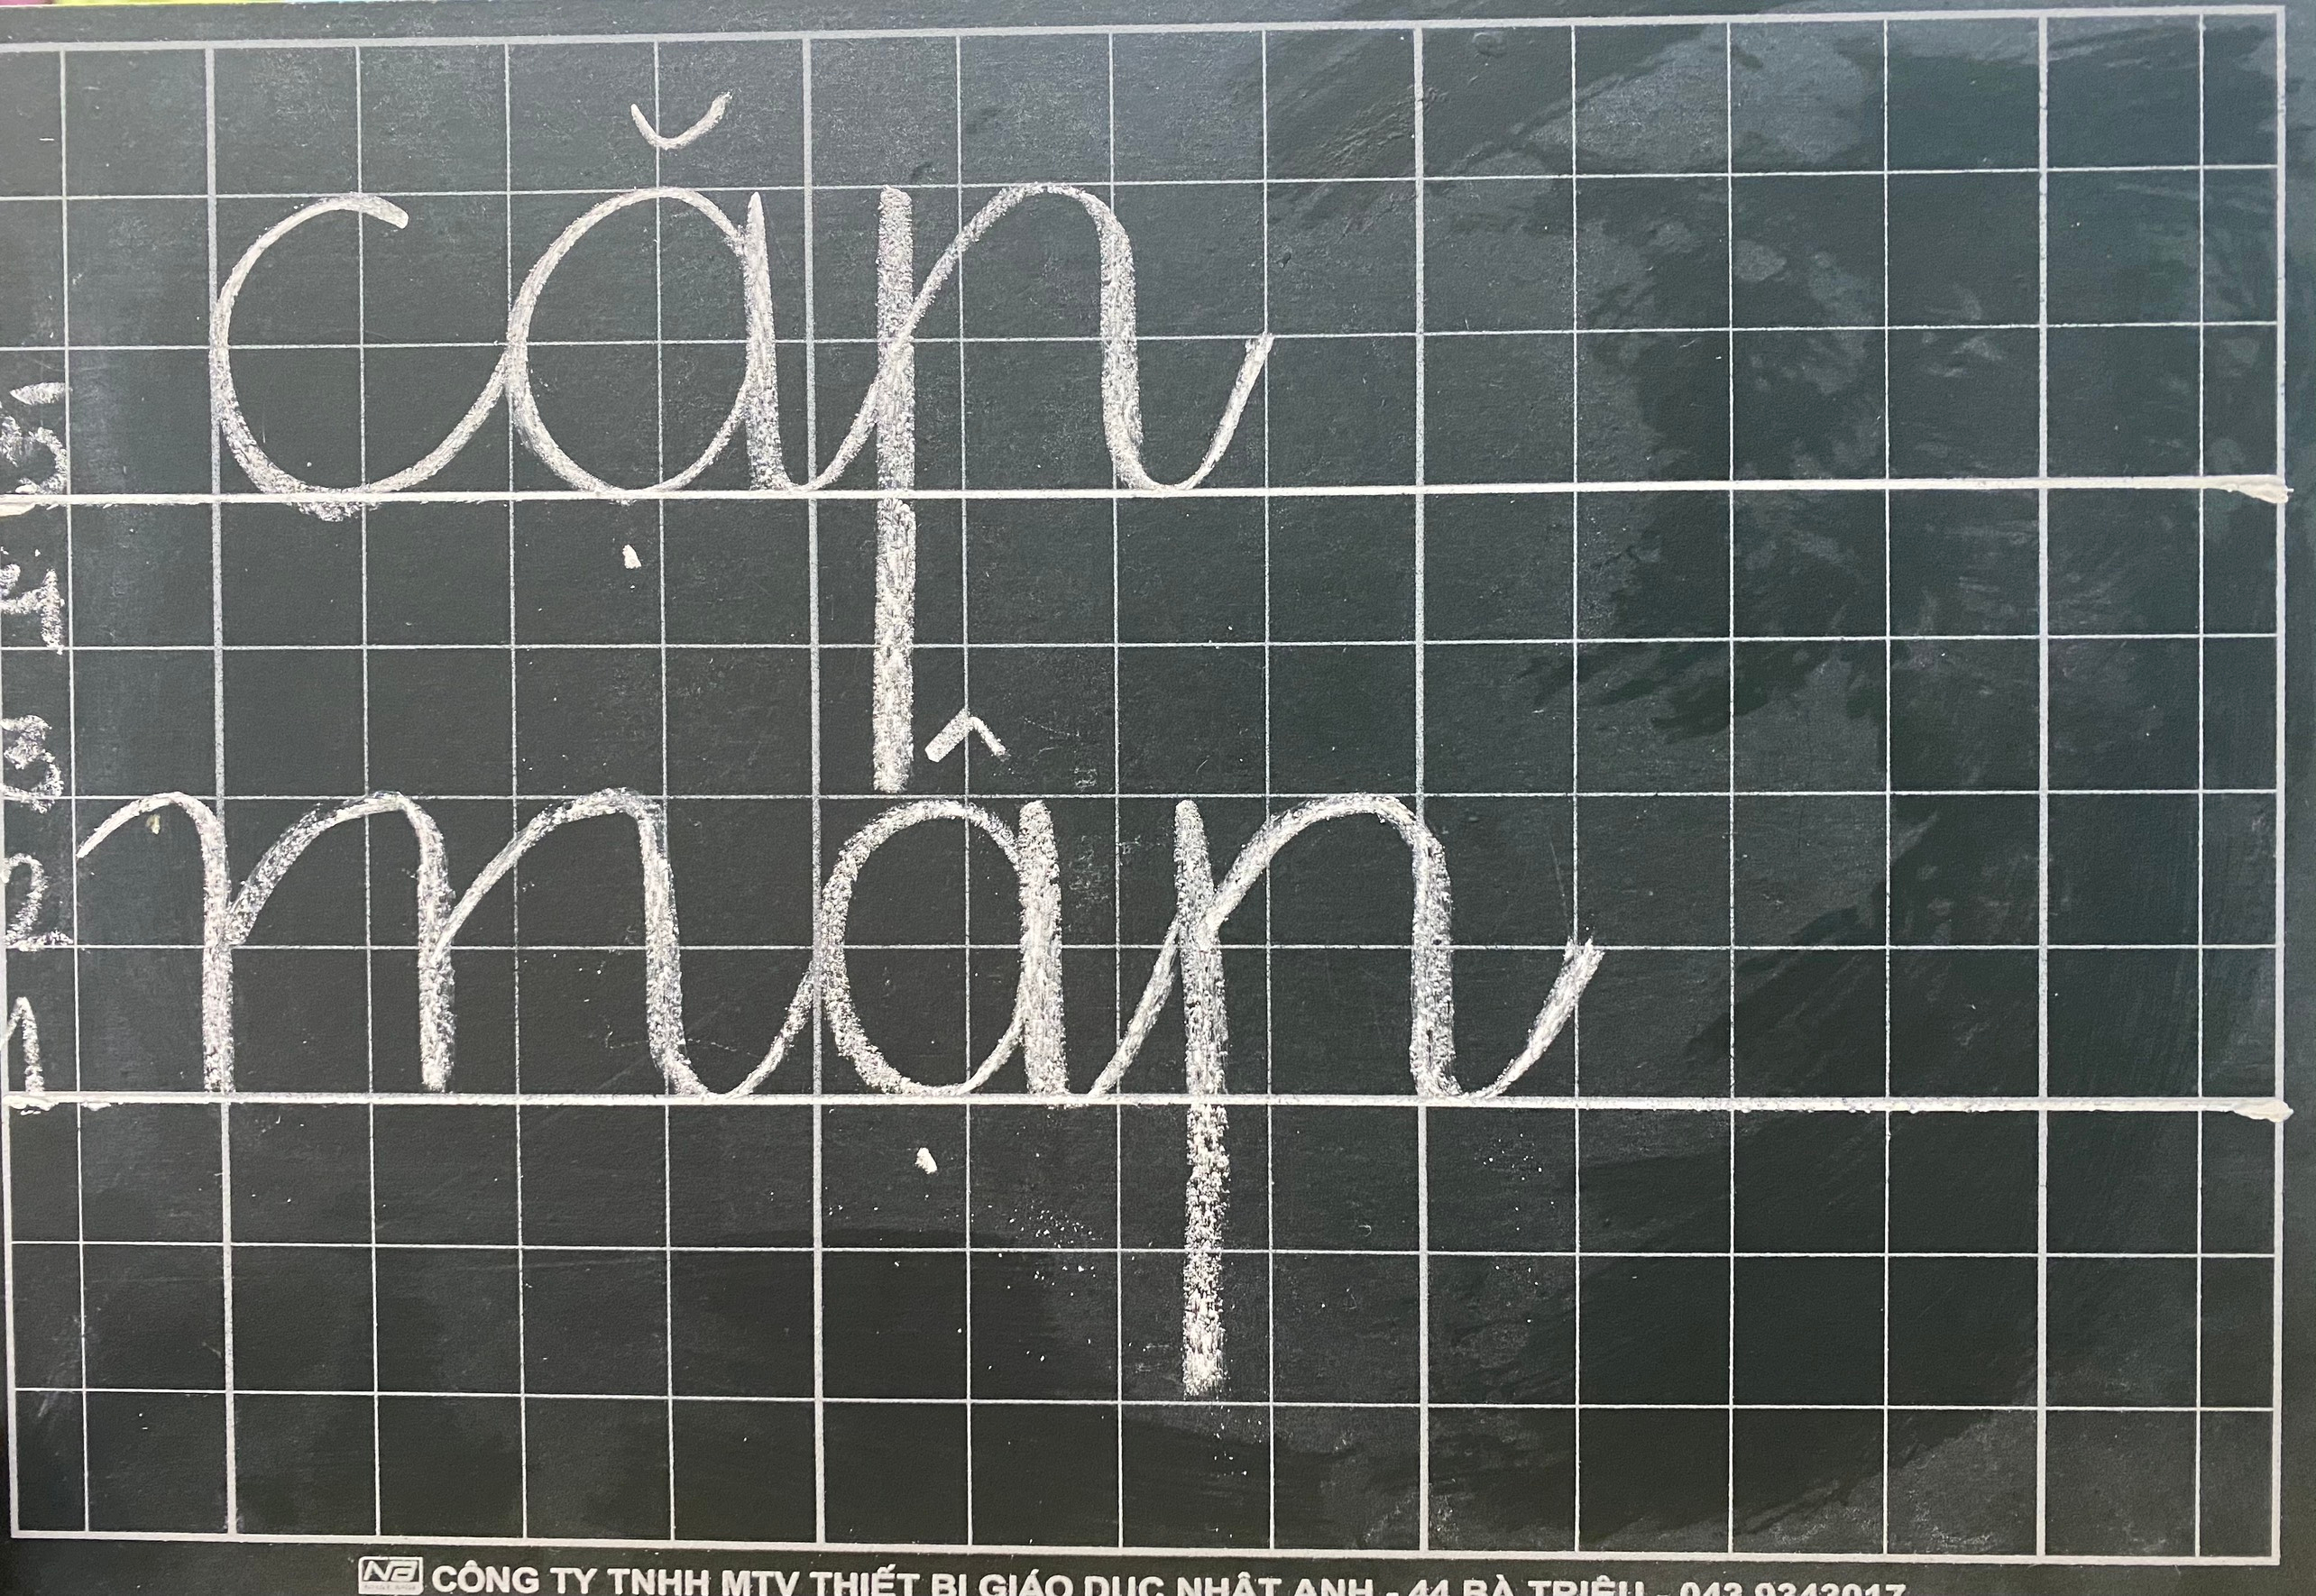 cặp
mập
CÔNG TY TNHH MTV THIẾT BỊ GIÁO DỤC NHẬT ANH - 44 BÀ TRIỆU - 043.9343017